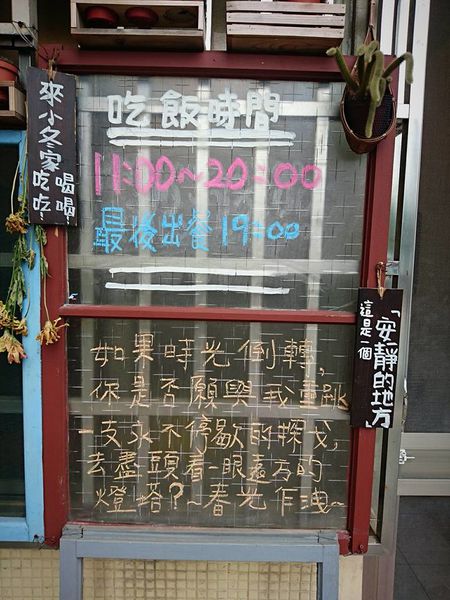 來小冬家
吃吃喝喝
吃飯時間
11:00~20:00
最後出餐19:00
這是一個
「安靜的地方」
如果時光倒轉,
你是否願與我重跳
一支永不停歇的探戈,
去盡頭看一眼遠方的
燈塔?~春光乍洩~